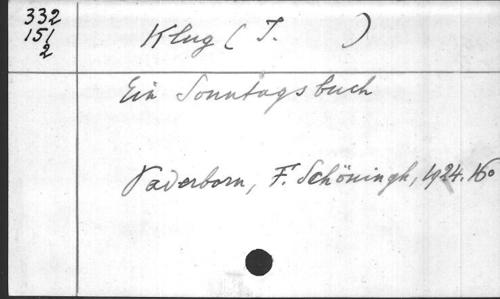 332
151
2
Klug (I. )
Ein Sonntagsbuch
Paderborn, F. Schöningh, 1924. 16°